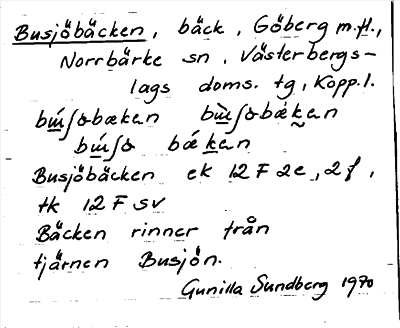 Busjöbäcken, bäck, Göberg m.fl.,
Norrbärke sn, Västerbergs-
lags doms. tg, Kopp.l.
Busjöbäcken ek 12 F 2e, 2f,
tk 12 F SV
Bäcken rinner från
tjärnen Busjön.
Gunilla Sundberg 1970